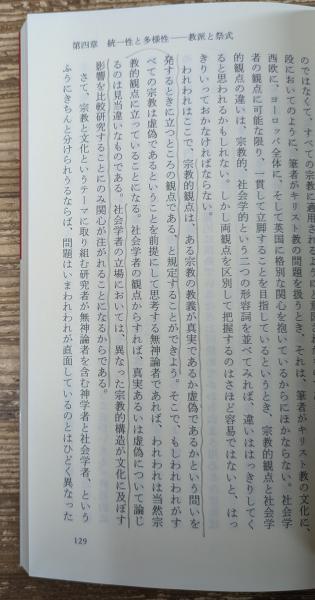 第四章　統一性と多様性——教派と祭式
のではなくて、すべての宗教に適用される
段においてのように、筆者がキリスト教の問題を扱うとき、それは、筆者がキリスト教の文化に、
西欧に、ヨーロッパ全体に、そして英国に格別な関心を抱いているからにほかならない。社会学
者の観点に可能な限り、一貫して立脚することを目指しているというとき、宗教的観点と社会学
的観点の違いは、宗教的、社会学的という二つの形容詞を並べてみれば、違いははっきりしてく
ると思われるかもしれない。しかし両観点を区別して把握するのはさほど容易ではないと、はっ
きりいっておかなければならない。
われわれはここで、宗教的観点は、ある宗教の教義が真実であるか虚偽であるかという問いを
発するときに立つところの観点である、と規定することができよう。そこで、もしわれわれがす
べての宗教は虚偽であるということを前提にして思考する無神論者であれば、われわれは当然宗
教的観点に立っていることになる。社会学者の観点からすれば、真実あるいは虚偽について論じ
るのは見当違いなものである。社会学者の立場においては、異なった宗教的構造が文化に及ぼす
影響を比較研究することにのみ関心が注がれることになるからである。
さて、宗教と文化というテーマに取り組む研究者が無神論者を含む神学者と社会学者、という
ふうにきちんと分けられうるならば、問題はいまわれわれが直面しているのとはひどく異なった
129